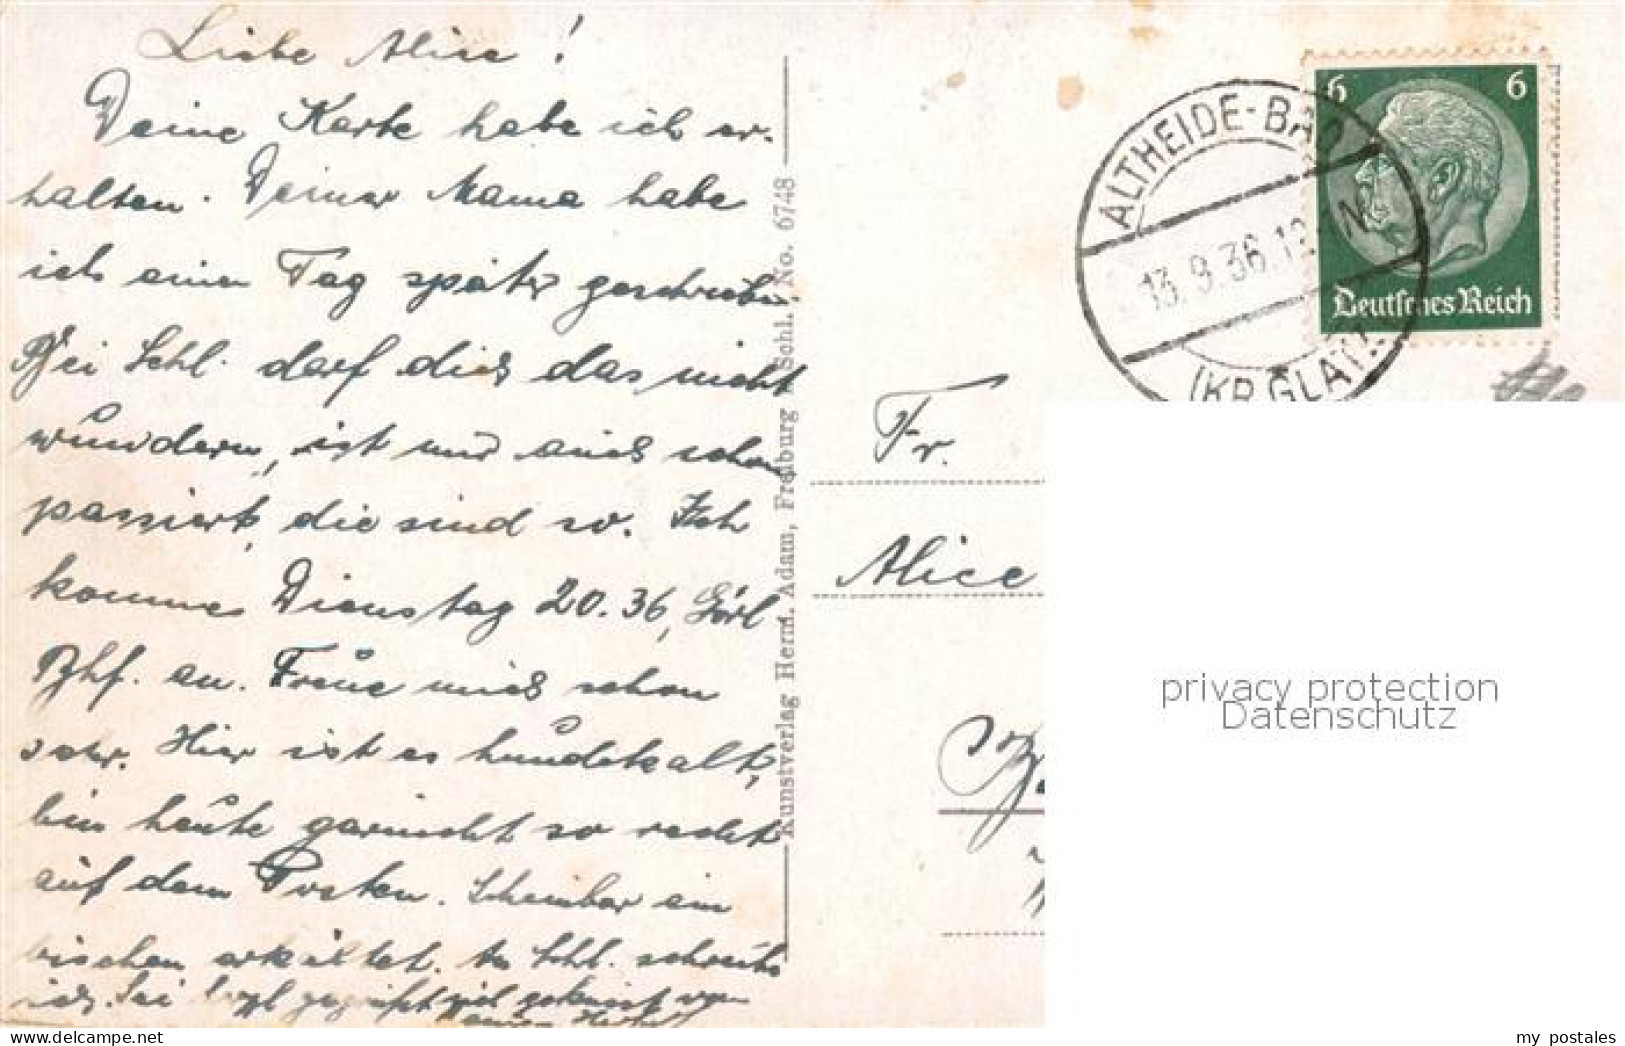 Liebe Alice!
Deine Karte habe ich er-
halten. Deiner Mama habe
ich einen Tag später geschrieben.
Bei Schl. darf dich das nicht
wundern, ist mir auch schon
passiert, die sind so. Ich
komme Dienstag 20.36, Görl
Bhf. an. Freue mich schon
sehr. Hier ist es hundekalt,
bin heute garnicht so recht
auf dem Posten. Scheinbar ein
bischen erkältet. An Schl. schreibe
ich. Sei gegrüßt und geküsst von
Kunstverlag Herm. Adam, Freiburg i. Schl. No. 6748
ALTHEIDE-BAD
13.9.36.12
N
(KR. GLATZ)
6 6
Deutsches Reich
Fr.
Alice
privacy protection
Datenschutz
my postales